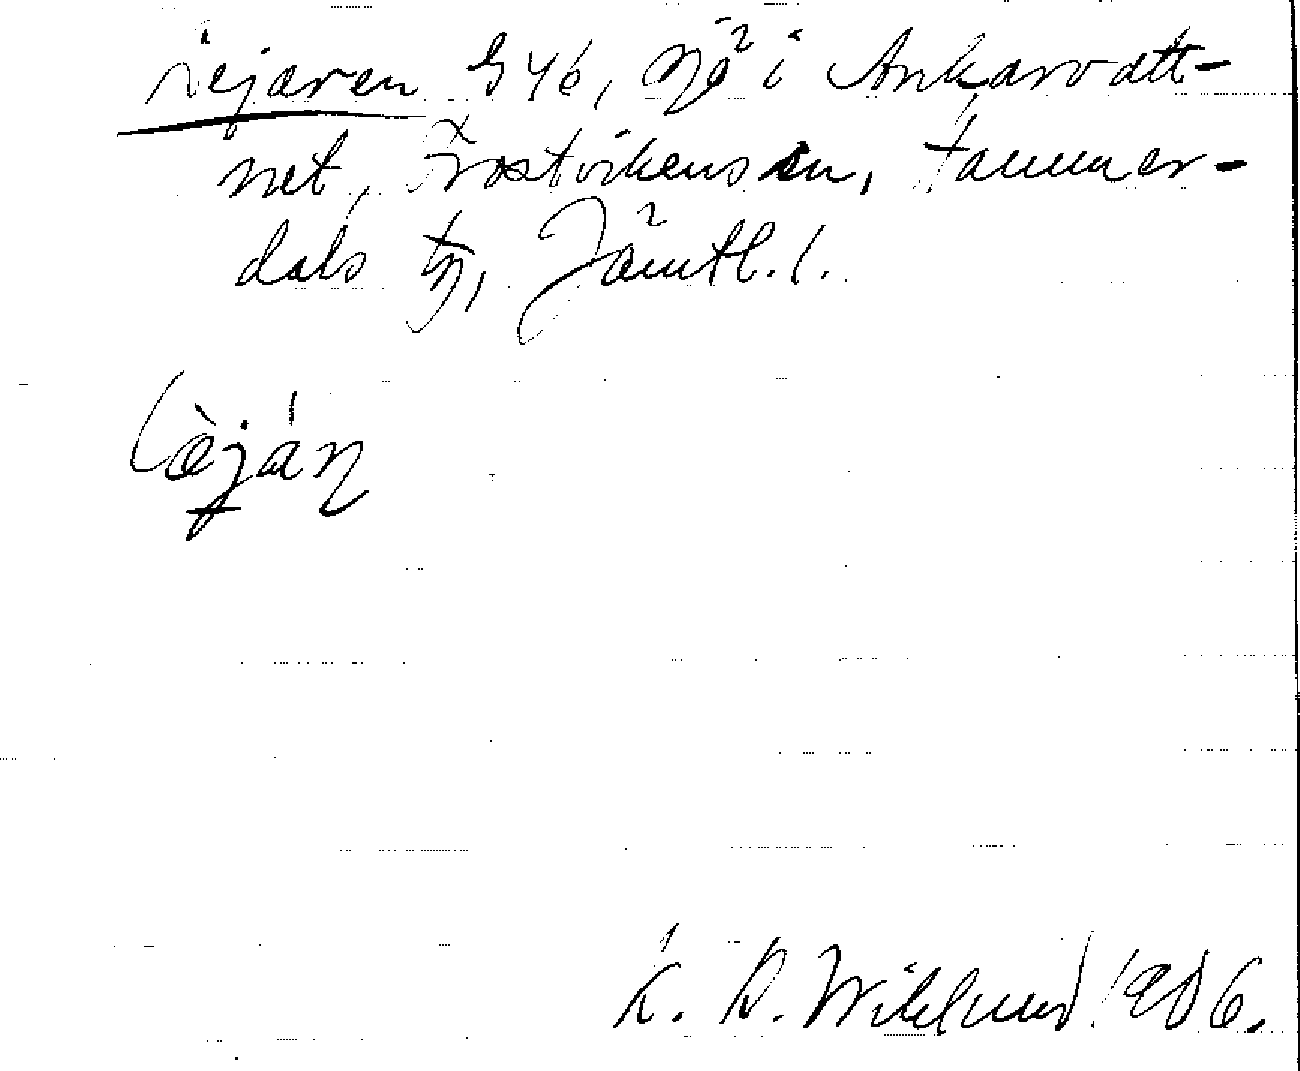 Lejaren G46, nö i Ankarvatt-
net, Frostvikens sn, Hammer-
dals tg, Jämtl. l.
lèján
K. B. Wiklund 1906.